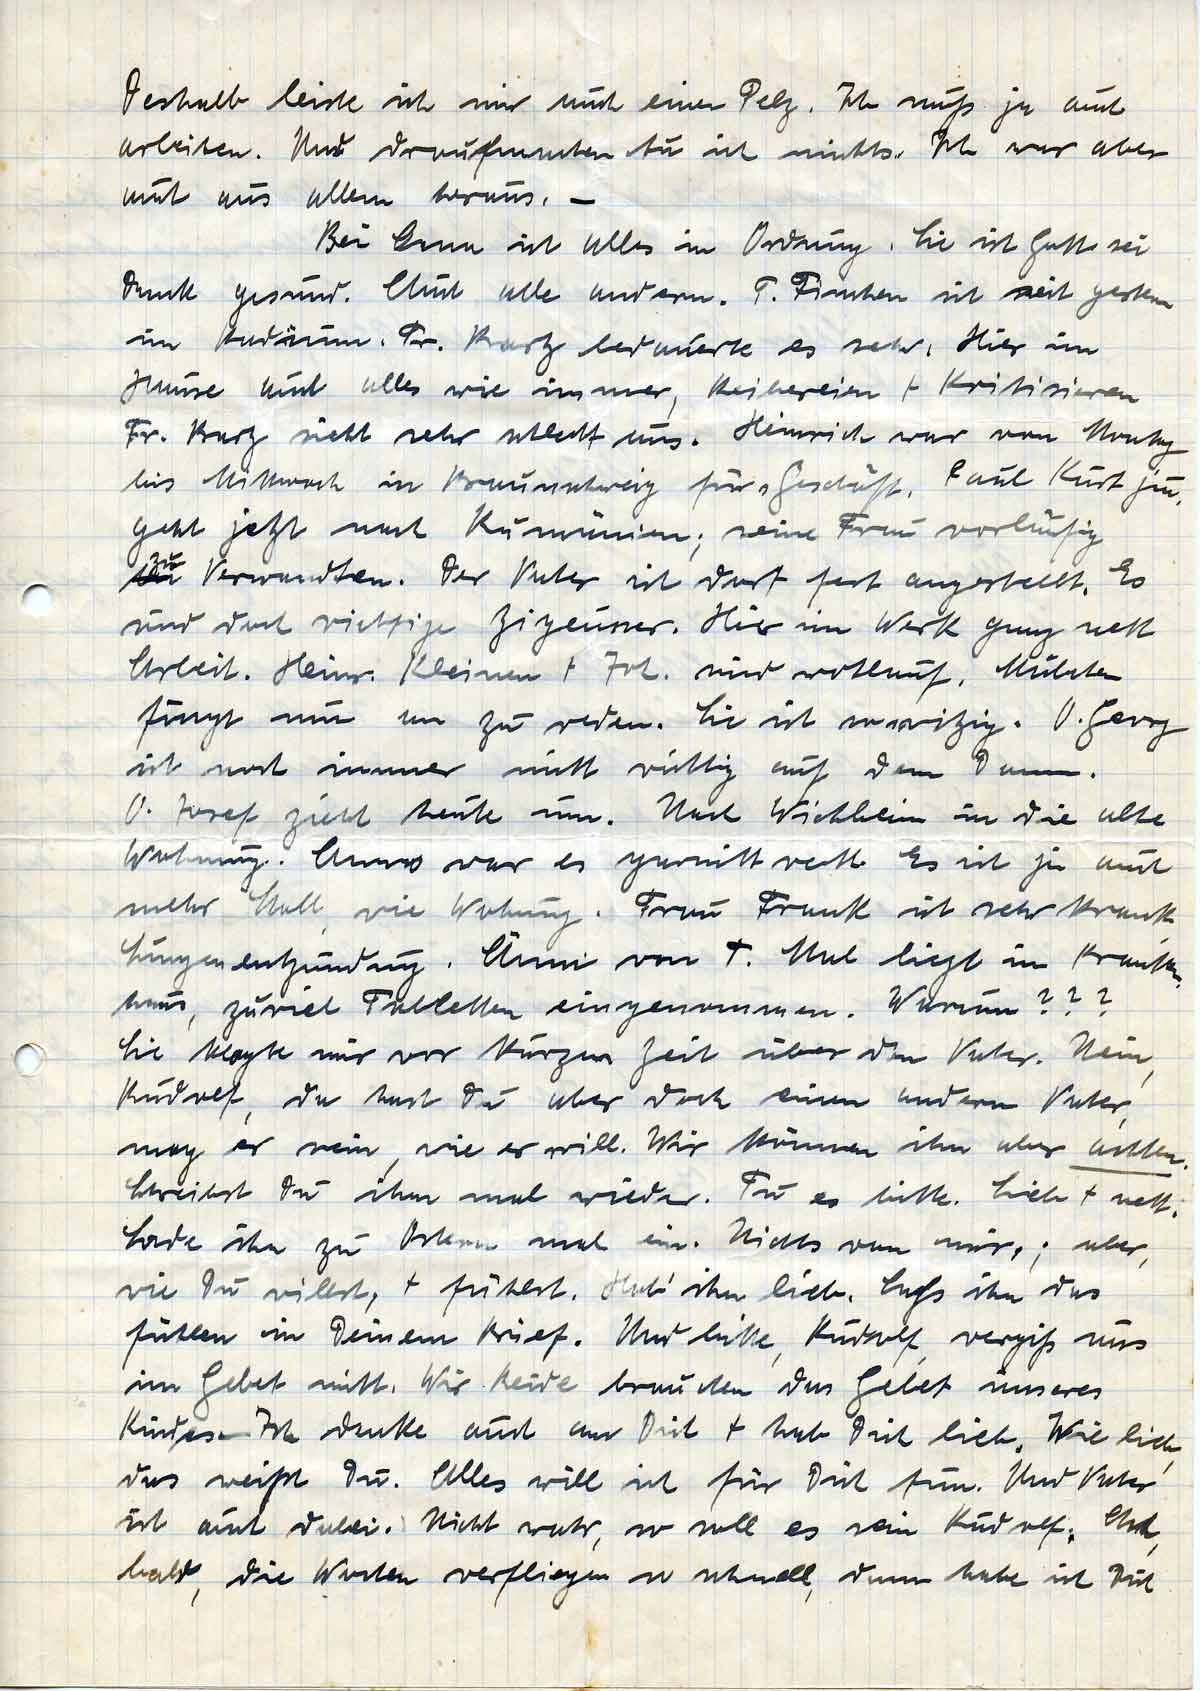 Deshalb leiste ich mir auch einen Pelz. Ich muß ja auch
arbeiten. Und draufmachen tu ich nichts. Ich war aber
mit aus allem heraus. –
Bei Oma ist alles in Ordnung. Sie ist Gott sei
Dank gesund. Auch alle andern. T. Finchen ist seit gestern
im Fr. bedauerte es sehr. Hier im
Hause auch alles wie immer, Reibereien + Kritisieren
Fr. sieht sehr schlecht aus. Heinrich war von Montag
bis Mittwoch in Braunschweig fürs Geschäft. Paul Kurt jun.
geht jetzt nach Rumänien; seine Frau vorläufig
zu Verwandten. Der Vater ist dort fest angestellt. Es
sind doch richtige Zigeuner. Hier im Werk ganz nett
Arbeit. Heinr. Kleinen + Joh. sind wohlauf. Malchen
fängt nun an zu reden. Sie ist so witzig. O. Georg
ist noch immer nicht richtig auf dem Damm.
O. Josef zieht heute um. Nach Wichheim in die alte
Wohnung. Anna war es garnicht recht. Es ist ja auch
mehr Stall, wie Wohnung. Frau Frank ist sehr krank
Lungenentzündung. Änni von T. Mal liegt im Kranken-
haus, zuviel Tabletten eingenommen. Warum???
Sie klagte mir vor kurzer Zeit über den Vater. Nein,
Rudolf, da hast Du aber doch einen andern Vater,
mag er sein, wie er will. Wir können ihn aber achten.
Schreibst Du ihm mal wieder. Tu es bitte. Lieb + nett.
Lade ihn zu Ostern mal ein. Nichts von mir,; aber,
wie Du willst, + fühlst. Hab' ihn lieb. Laß ihn das
fühlen in Deinem Brief. Und bitte, Rudolf, vergiß uns
im Gebet nicht. Wir beide brauchen das Gebet unseres
Kindes. Ich denke auch an Dich + hab Dich lieb. Wie lieb,
das weißt Du. Alles will ich für Dich tun. Und Vater
ist auch dabei. Nicht wahr, so soll es sein Rudolf. Und,
bald, die Wochen verfliegen so schnell, dann habe ich Dich